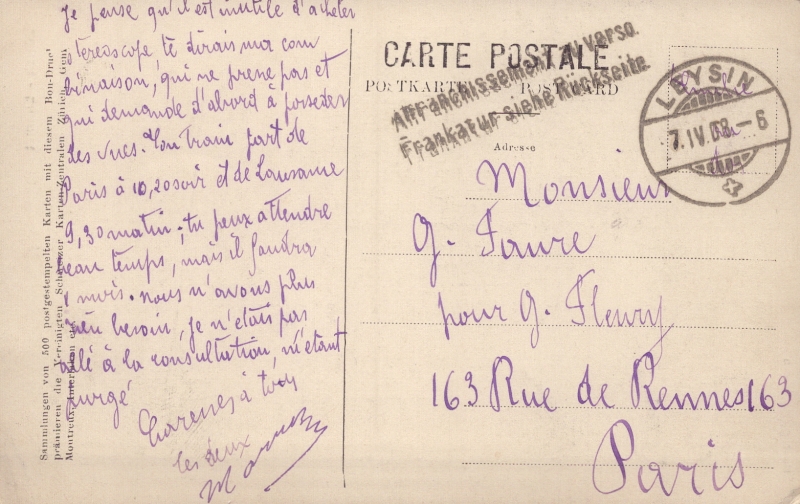 Je pense qu'il est inutile d'acheter
stereoscope te dirais ma com
binaison, qui ne prene pas et
qui demande d'abord à posseder
des vues. Ton Train part de
Paris à 10,20 soir et de Lausanne
9,30 matin; tu peux attendre
beau temps, mais il faudra
1 mois. nous n'avons plus
besoin, je n'étais pas
allé à la consultation, m'étant
purgé
à tous
les deux
Sammlungen von 500 postgestempelten Karten mit diesem Bon-Druck
prämieren die Vereinigten Schweizer Karten-Zentralen Zürich, Genf
Montreux, Interlaken etc.
CARTE POSTALE
POSTKARTE POSTCARD
Affranchissement au verso.
Frankatur siehe Rückseite.
LEYSIN
7.IV.08.-6
Adresse
Monsieur
G. Faure
pour G. Fleury
163 Rue de Rennes 163
Paris